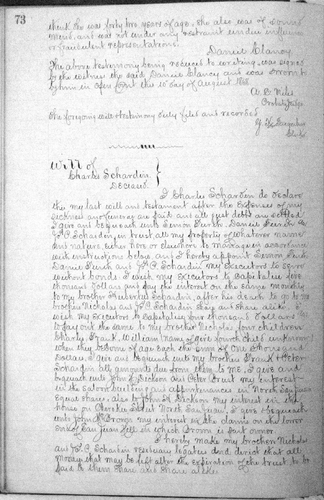 73
think he was forty two years of age. he also was of sound
mind, and was not under any restraint undue influence
or fraudulent representations.
Daniel Clancy
The above testimony being reduced to writing, was signed
by the witness the said Daniel Clancy and was sworn to
by him in open Court this 10 day of August
Probate Judge
The foregoing will & testimony duly filed and recorded
Will of
Charles Schardin
Deceased
I Charles Schardin do declare
this my last will and testament after the expenses of my
sickness and funeral are paid and all just debts are settled
I give and bequeath unto Simon Finch, Daniel Finch and
C. Schardin, in trust all my property of whatever name
and nature, either here or elsewhere to manage in accordance
with instructions below, and I hereby appoint Simon Finch
Daniel Finch and C. Schardin my executors to serve
without bonds. I wish my executors to capitalize five
thousand dollars and pay the interest on the same monthly
to my brother Hubertus Schardin, after his death to go to my
brother Nicholas and C. Schardin share and share alike. I
wish my executors to capitalize four thousand dollars and
to pay out the same to my brother Nicholas four children
Charly, Frank, William, Mary or their youngest child
when they become of age each the sum of one thousand
dollars. I give and bequeath unto my brother Frank
Schardin all amounts due from them to me, I give and
bequeath unto John H. Dickson and Peter my interest
in the saloon building and appurtenances in North San Juan
equal shares, also to John H Dickson my interest in the
house on Cherokee Street North San Juan. I give & bequeath
unto John my interest in the claims on the lower
end of San Juan Hill in which Brown is part owner
I hereby make my brother Nicholas
and C. Schardin residuary legatees and direct that all
monies that may be left after the expiration of the trust to be
paid to them share and share alike.